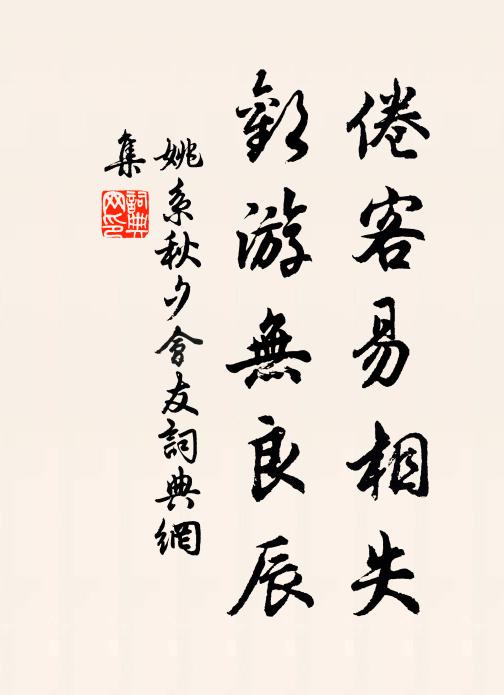 倦客易相失
歡游無良辰
姚系秋夕會友詞典網
集
詞典
网印